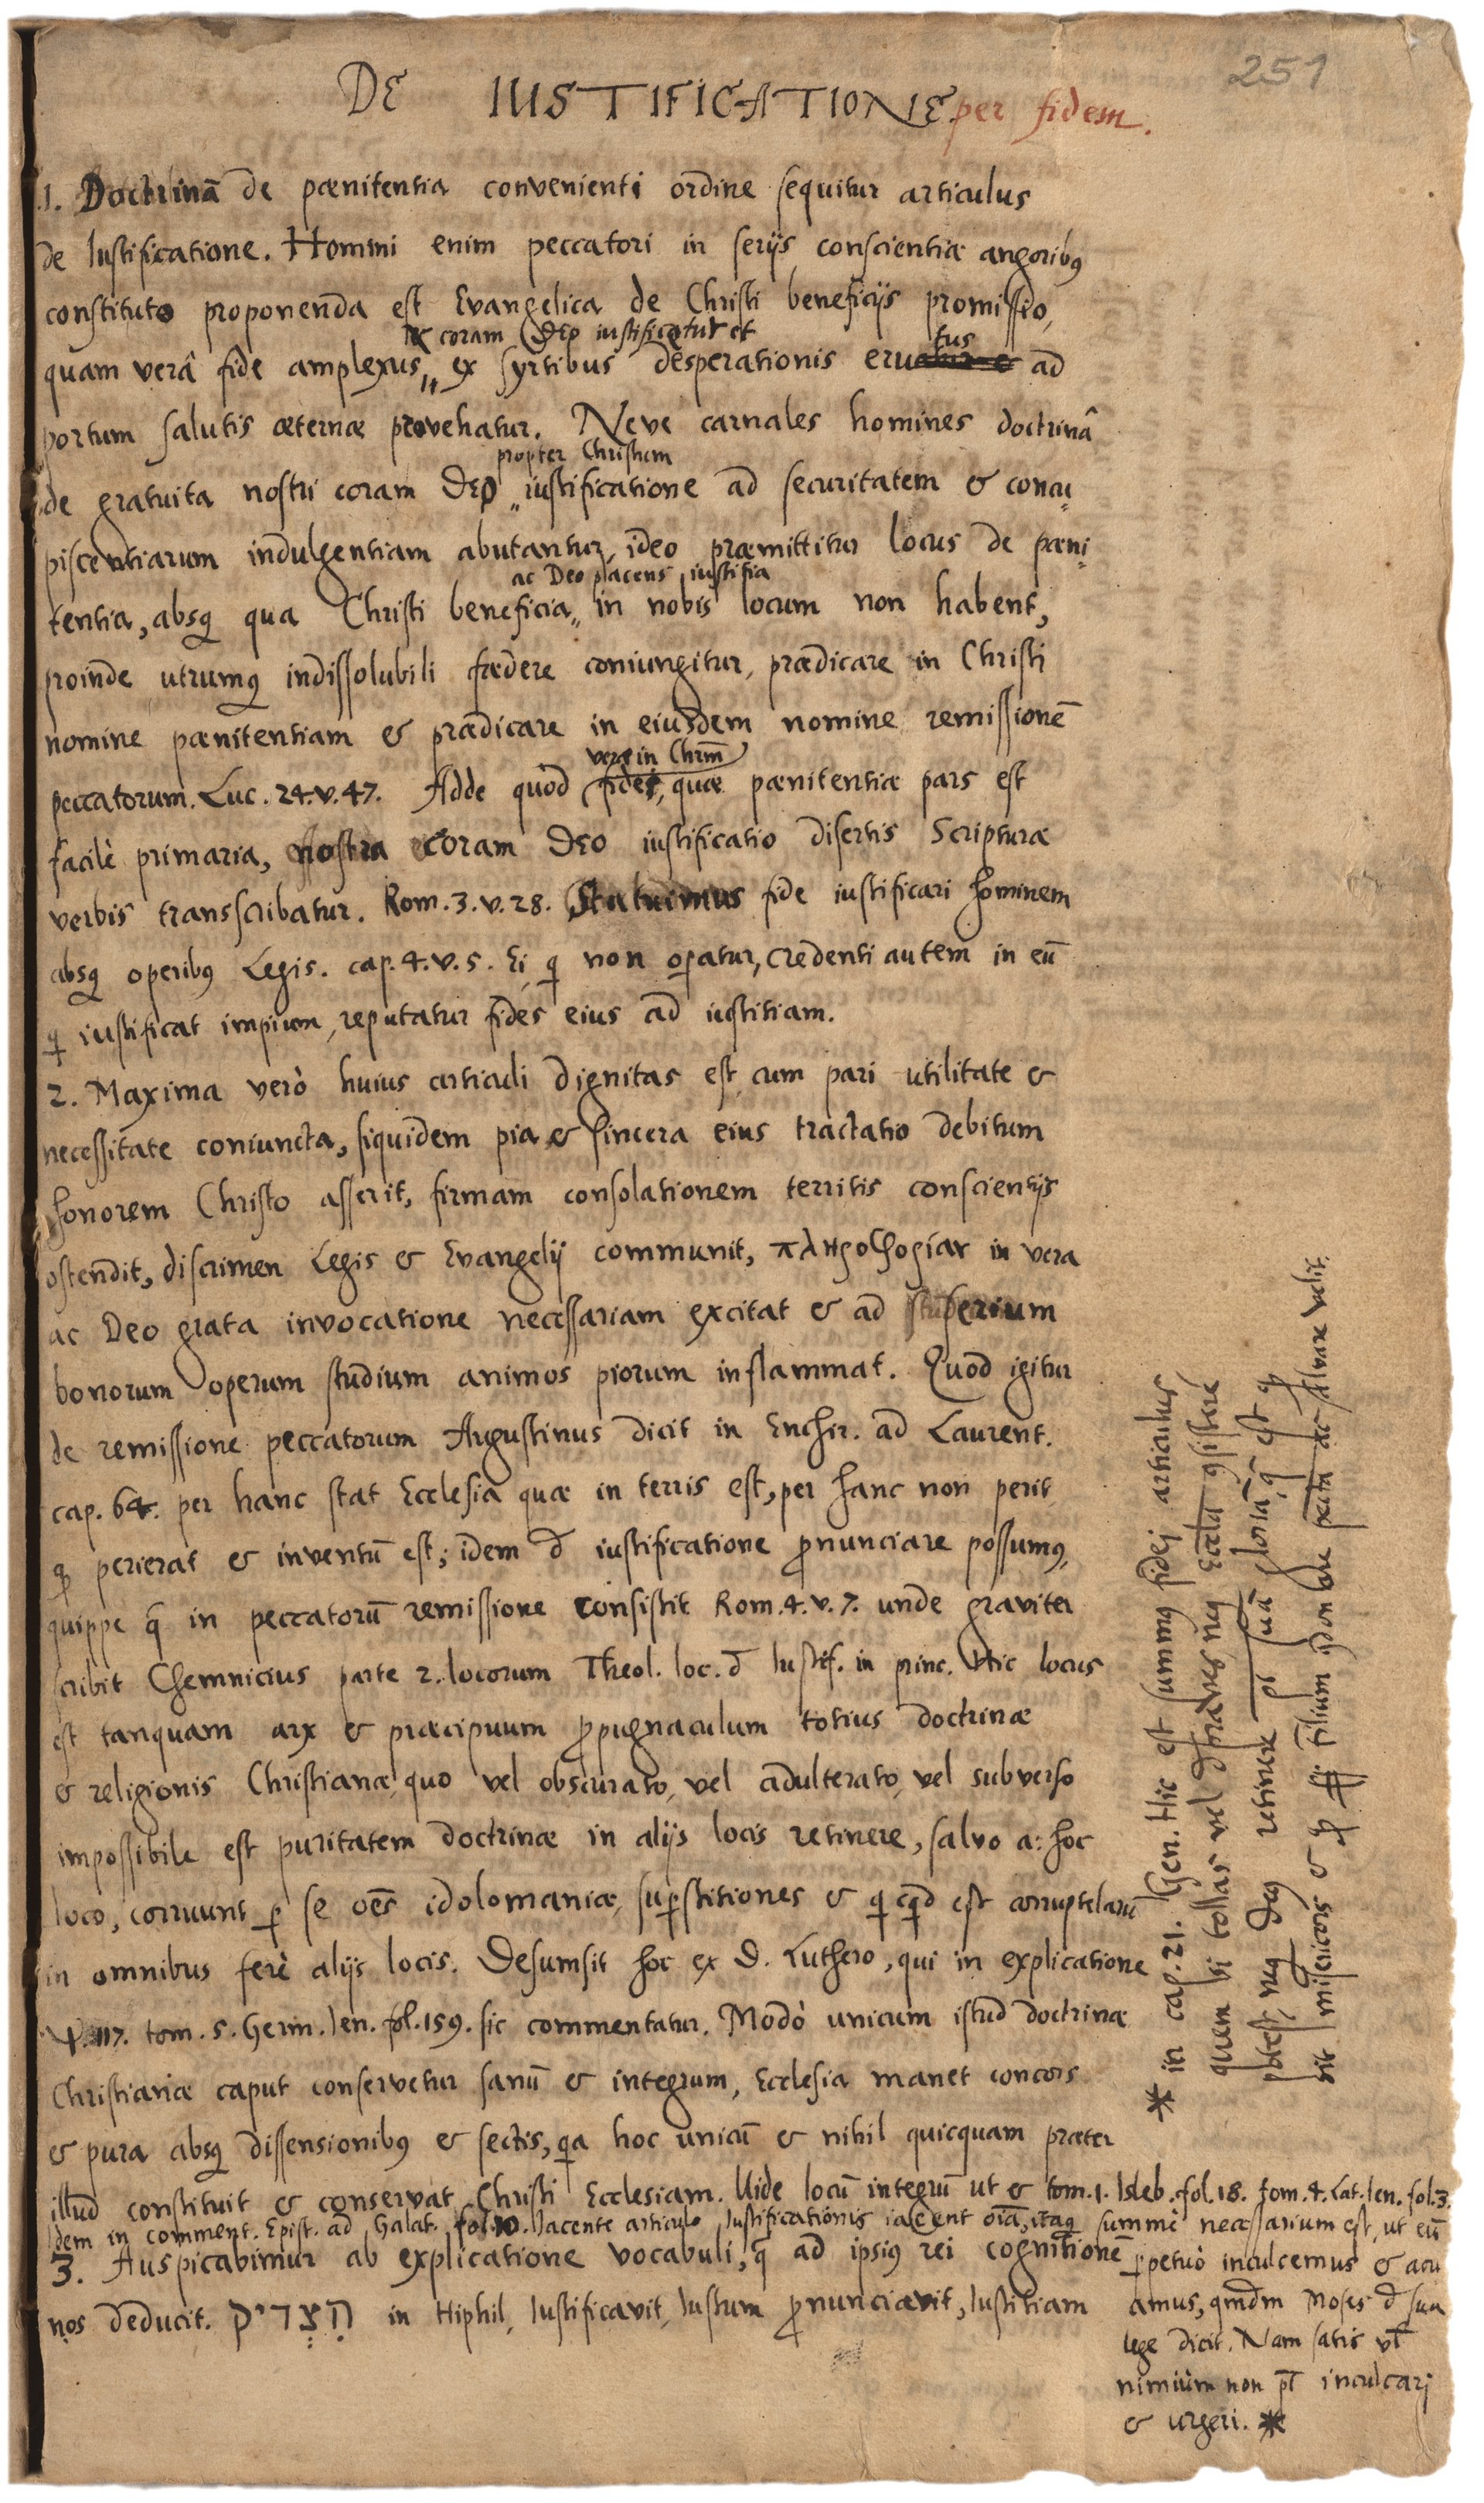 251
DE IUSTIFICATIONE per fidem.
1. Doctrinā de pœnitentia convenienti ordine sequitur articulus
de Iustificatione. Homini enim peccatori in serijs conscientiæ angoribꝰ
constituto proponenda est Evangelica de Christi beneficijs promissio,
& coram Deo iustificatur et
tus
quam verâ fide amplexus,, ex syrtibus desperationis eruatur & ad
portum salutis æternæ provehatur. Neve carnales homines doctrinâ
propter Christum
de gratuita nostri coram Deo,, iustificatione ad securitatem & concu-
piscentiarum indulgentiam abutantur, ideo præmittitur locus de pœni-
ac Deo placens iustitia
tentia, absq; qua Christi beneficia,, in nobis locum non habent,
proinde utrumq; indissolubili fœdere coniungitur, prædicare in Christi
nomine pœnitentiam & prædicare in eiusdem nomine remissionē
veræ in Chrm̄
peccatorum. Luc. 24. v. 47. Adde quod fidei, quæ pœnitentiæ pars est
facilè primaria, nostra coram Deo iustificatio disertis Scripturæ
verbis transscribatur. Rom. 3. v. 28. Statuimus fide iustificari hominem
absq; operibꝰ Legis. cap. 4. v. 5. Ei, q̇ non oꝑatur, credenti autem in eū
q̇ iustificat impium, reputatur fides eius ad iustitiam.
2. Maxima verò huius articuli dignitas est cum pari utilitate &
necessitate coniuncta, siquidem pia & sincera eius tractatio debitum
honorem Christo asserit, firmam consolationem territis conscientijs
ostendit, discrimen Legis & Evangelij communit, πληροφορίαν in vera
ac Deo grata invocatione necessariam excitat & ad serium
bonorum operum studium animos piorum inflammat. Quod igitur
de remissione peccatorum Augustinus dicit in Enchir. ad Laurent.
cap. 64. per hanc stat Ecclesia quæ in terris est, per hanc non perit
qꝫ perierat & inventū est; idem đ iustificatione ꝓnunciare possumꝰ,
quippe q̄ in peccatorū remissione consistit Rom. 4. v. 7. unde graviter
scribit Chemnicius parte 2. locorum Theol. loc. đ Iustif. in princ. Hic locus
est tanquam arx & præcipuum ꝓpugnaculum totius doctrinæ
& religionis Christianæ, quo vel obscurato, vel adulterato, vel subverso
impossibile est puritatem doctrinæ in alijs locis retinere, salvo a: hoc
loco, corruunt ꝑ se oēs idolomaniæ, suꝑstitiones & q̇cq̇d est corruptelarū
in omnibus ferè alijs locis. Desumsit hoc ex D. Luthero, qui in explicatione
Ψ. 117. tom. 5. Germ. Ien. fol. 159. sic commentatur. Modò unicum istud doctrinæ
Christianæ caput conservetur sanū & integrum, Ecclesia manet concors
& pura absq; dissensionibꝰ & sectis, qa hoc unicū & nihil quicquam præter
illud constituit & conservat Christi Ecclesiam. Vide locū integrū ut & tom. 1. Isleb. fol. 18. tom. 4. Lat. Ien. fol. 3.
Idem in comment. Epist. ad Galat. fol. 10. Iacente articulo Iustificationis iacent oīa, itaq; summè necessarium est, ut eū
ꝑpetuò inculcemus & acu
amus, qmdm Moses đ sua
lege dicit. Nam satis vł
nimiùm non pt̄ inculcari
& urgeri. *
3. Auspicabimur ab explicatione vocabuli, q̄ ad ipsiꝰ rei cognitionē
nos deducit. הִצְדִיק in Hiphil, Iustificavit, Iustum ꝓnunciavit, Iustitiam
* in cap. 21. Gen. Hic est summꝰ fidej articulus
quem si tollas vel depraves, neq; Eccła ꝯsistere
potest, neq; Deꝰ retinere pt̄ suā gloriā, q̄ est qꝫ
sit misericors & qꝫ ꝓpter filium ꝯdonare pctā ac salvare velit.